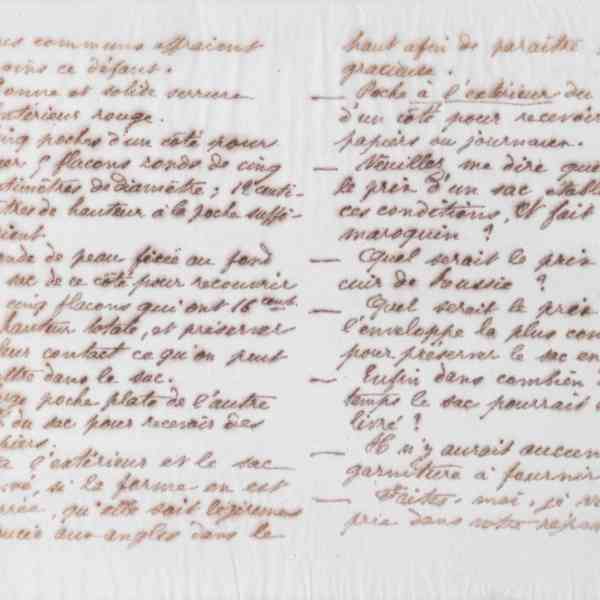 communs offraient
moins ce défaut.
bonne et solide serrure
intérieur rouge.
cinq poches d'un côté pour
5 flacons ronds de cinq
centimètres de diamètre; 12 centi-
mètres de hauteur à la poche suffi-
raient.
de peau fixée au fond
sac de ce côté pour recouvrir
cinq flacons qui ont 16 cent.
hauteur totale, et préserver
leur contact ce qu'on peut
mettre dans le sac.
poche plate de l'autre
du sac pour recevoir des
papiers.
l'extérieur et le sac
si la forme en est
carrée, qu'elle soit légèrement
aux angles dans le
haut afin de paraître
gracieuse.
— Poche à l'extérieur du
d'un côté pour recevoir
papiers ou journaux.
— Veuillez me dire quel
le prix d'un sac établi
ces conditions, et fait
maroquin ?
— Quel serait le prix
cuir de Russie ?
— Quel serait le prix
l'enveloppe la plus
pour préserver le sac en
— Enfin dans combien
temps le sac pourrait
livré ?
— Il n'y aurait aucune
garniture à fournir
— Faites-moi, je
prie dans votre